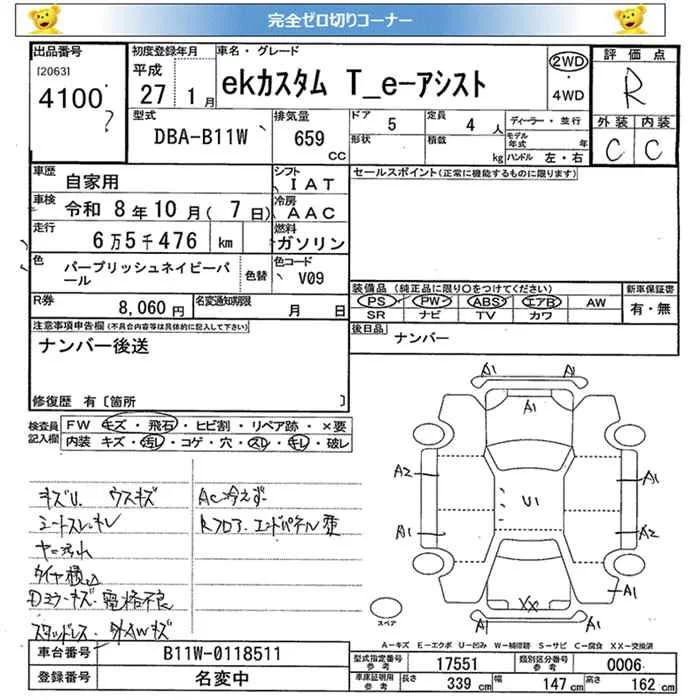 完全ゼロ切りコーナー
出品番号
[2063]
4100
?
初度登録年月
平成
27年 1月
車名・グレード
ekカスタム T_e-アシスト
2WD
・
4WD
評価点
R
外装 内装
C C
型式
DBA-B11W
排気量
659
CC
ドア 5
形状
定員 4 人
積載 kg
ディーラー・並行
モデル年式 年
ハンドル 左・右
車歴 自家用
シフト IAT
車検 令和 8年10月( 7日)
冷房 AAC
走行 6万5千476 km
燃料 ガソリン
色 パープリッシュネイビーパール
色替
色コード V09
R券 8,060円
名変通知期限 月 日
セールスポイント(正常に機能するものに限ります)
装備品 (純正品に限り○をつけてください)
PS PW ABS エアB AW
SR ナビ TV カワ
新車保証書
有・無
注意事項申告欄(不具合内容等は具体的に記入して下さい)
ナンバー後送
後日品 ナンバー
修復歴 有〔箇所 〕
検査員記入欄
FW キズ・飛石・ヒビ割・リペア跡・×要
内装 キズ・汚れ・コゲ・穴・スレ・キレ・破レ
キズU. ウスキズ
シートスレ・キレ
ヤニ汚れ
タイヤ積込
Dミラーキズ・電格不良
スタッドレス・外AWキズ
AC冷えず
Rフロア・エンドパネル歪
A1
A1
A1
A2
A1
U1
A1
A2
A1
XX
スペア
A-キズ E-エクボ U-凹み W-補修跡 S-サビ C-腐食 XX-交換済
車台番号 B11W-0118511
登録番号 名変中
型式指定番号 参考 17551
類別区分番号 参考 0006
車庫証明用 参考 長さ 339 cm 幅 147 cm 高さ 162 cm